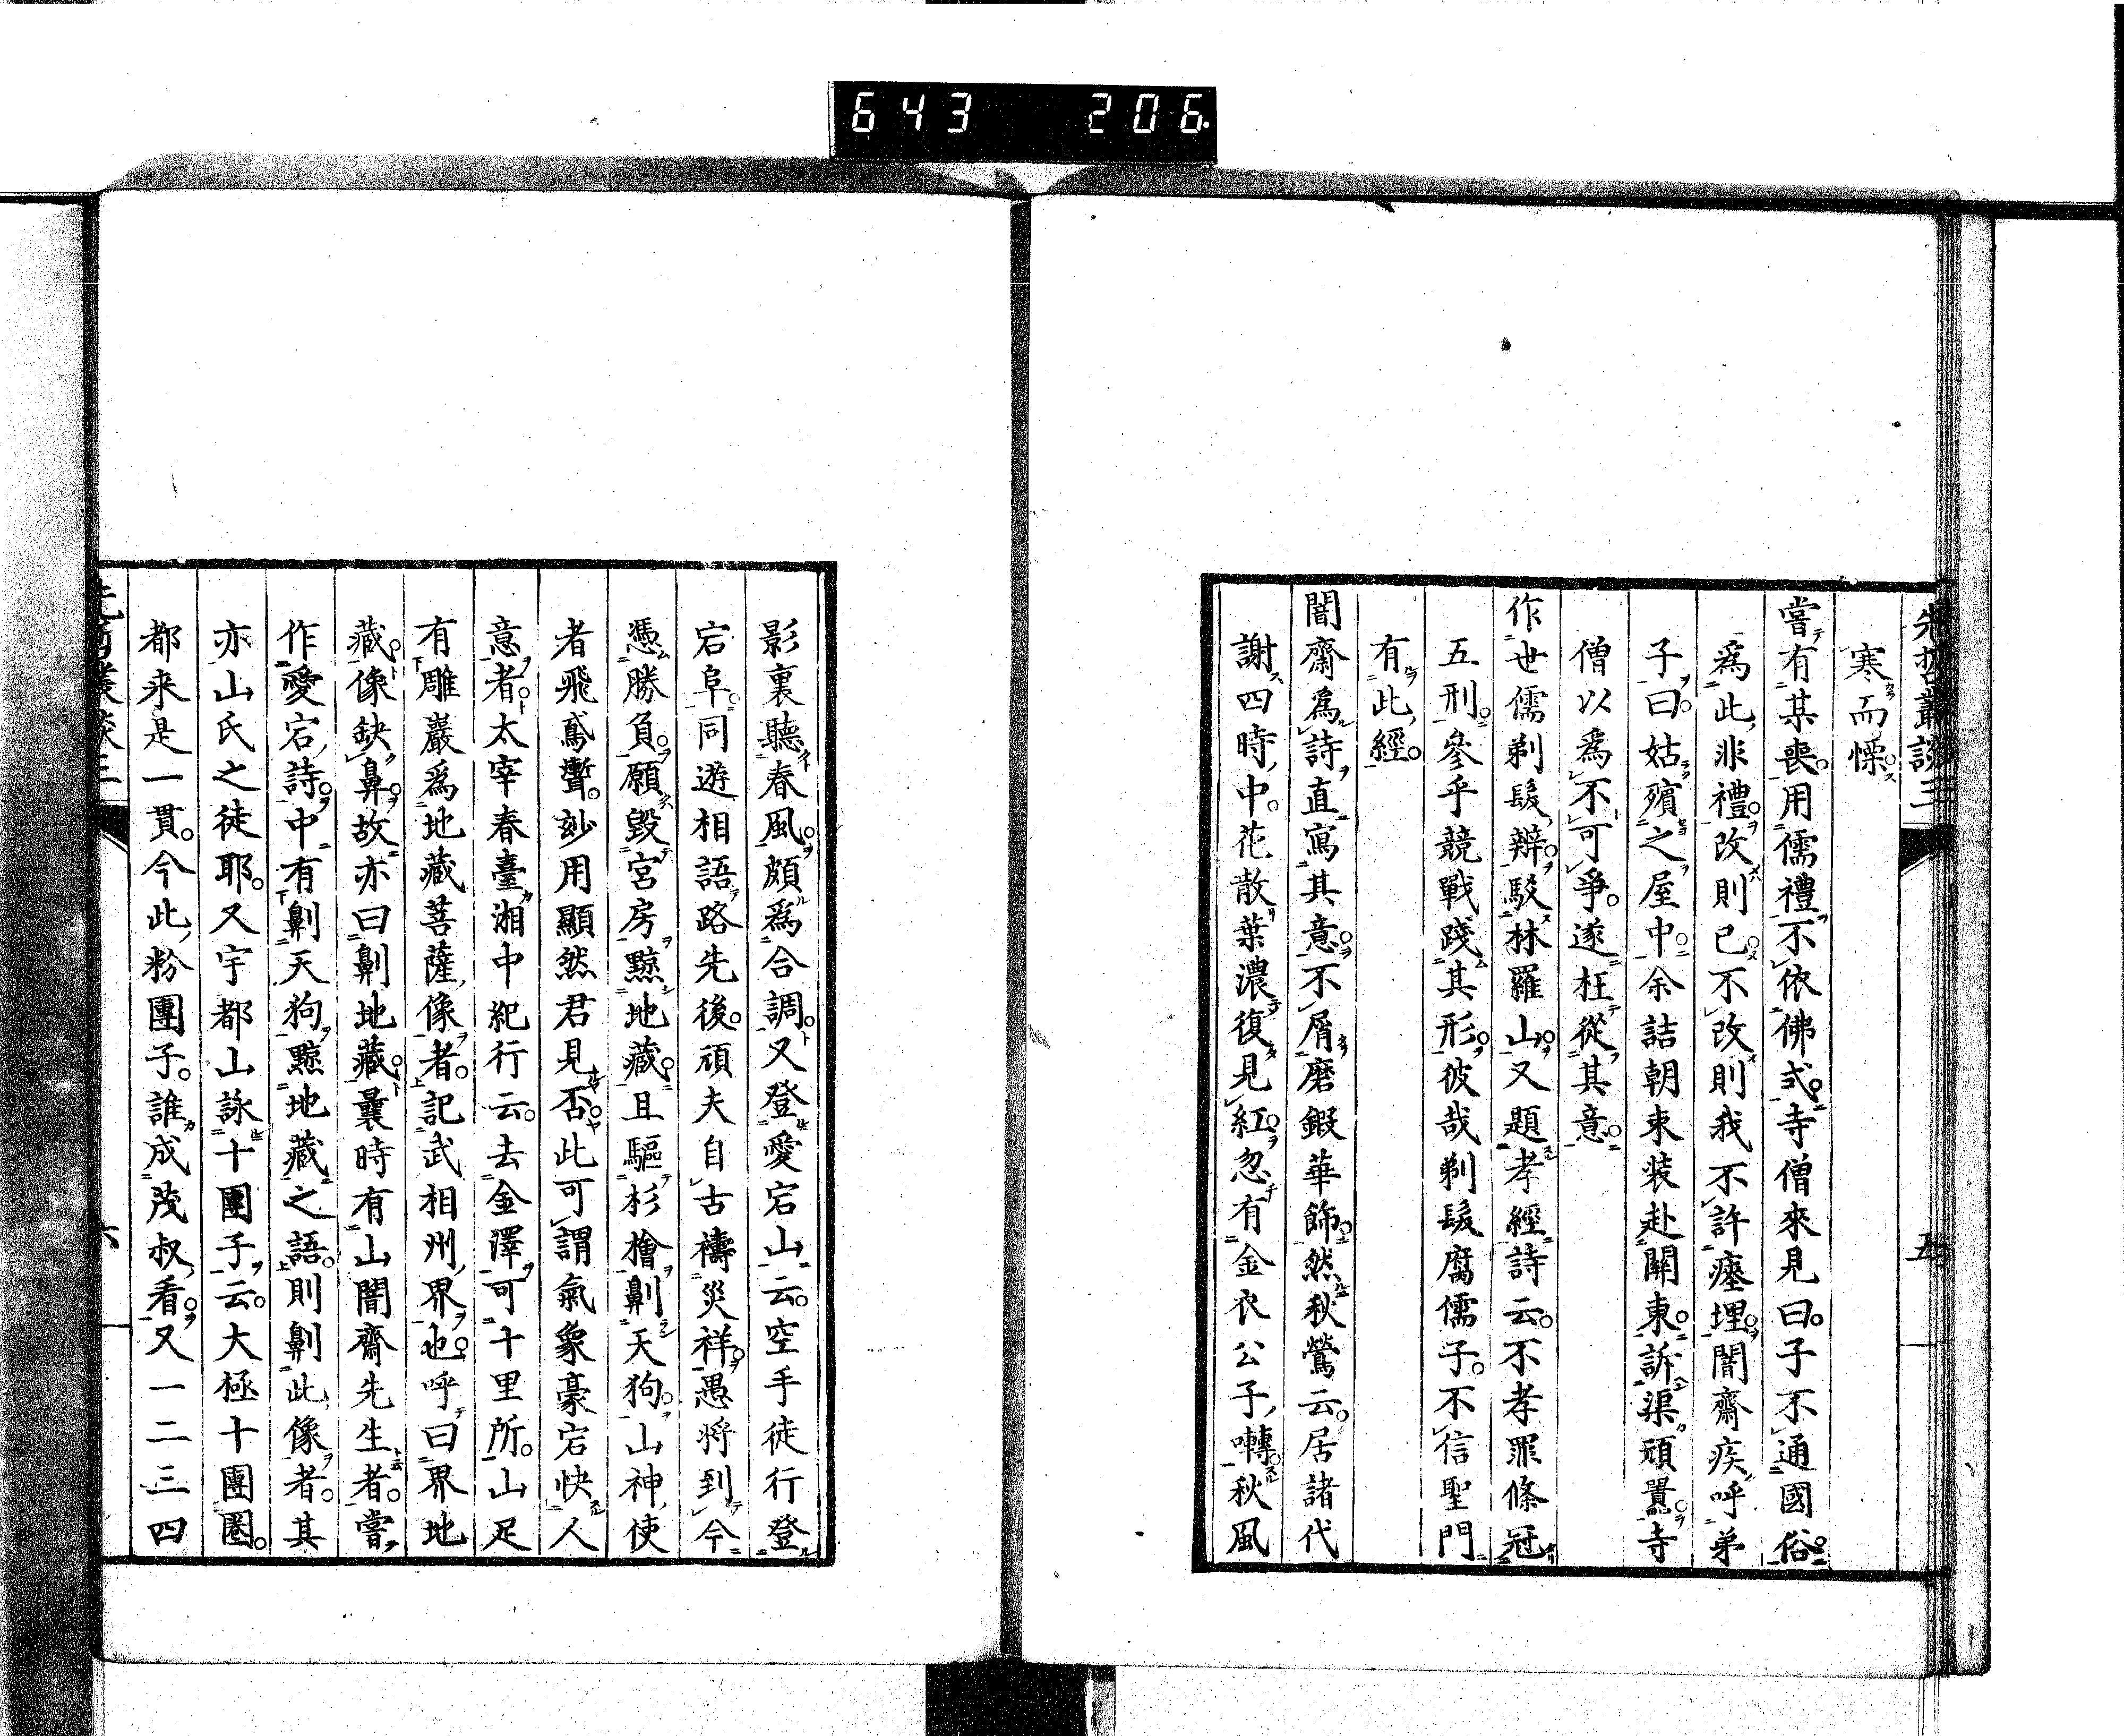 643 206
先哲叢談三
寒而慄
嘗有某喪用儒禮不依佛式寺僧來見曰子不通國俗
爲此非禮改則已不改則我不許瘞埋闇齋疾呼弟
子曰姑殯之屋中余詰朝束装赴關東訴渠頑嚚寺
僧以爲不可爭遂枉從其意
作世儒剃髮辨駁林羅山又題孝經詩云不孝罪條冠
五刑參乎競戰踐其形彼哉剃髮腐儒子不信聖門
有此經
闇齋爲詩直寫其意不屑磨鍜華飾然秋鶯云居諸代
謝四時中花散葉濃復見紅忽有金衣公子囀秋風
五
影裏聽春風頗爲合調又登愛宕山云空手徒行登
宕阜同遊相語路先後頑夫自古禱災祥愚將到今
憑勝負願毀宮房黥地藏且驅杉檜劓天狗山神使
者飛鳶讋妙用顯然君見否此可謂氣象豪宕快人
意者太宰春臺湘中紀行云去金澤可十里所山足
有雕巖爲地藏菩薩像者記武相州界也呼曰界地
藏像缺鼻故亦曰劓地藏曩時有山闇齋先生者嘗
作愛宕詩中有劓天狗黥地藏之語則劓此像者其
亦山氏之徒耶又宇都山詠十團子云大極十團圏
都来是一貫今此粉團子誰成茂叔看又一二三四
先哲叢談三
六